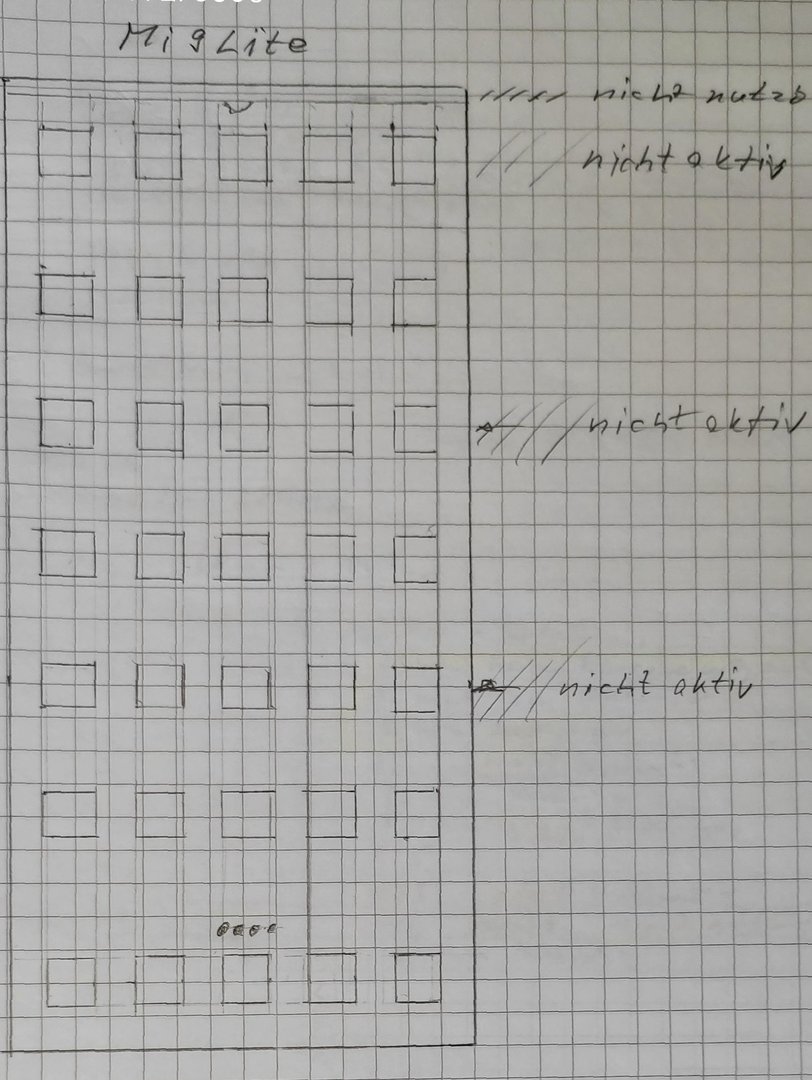 MigLite
nicht nutzb
nicht aktiv
nicht aktiv
nicht aktiv